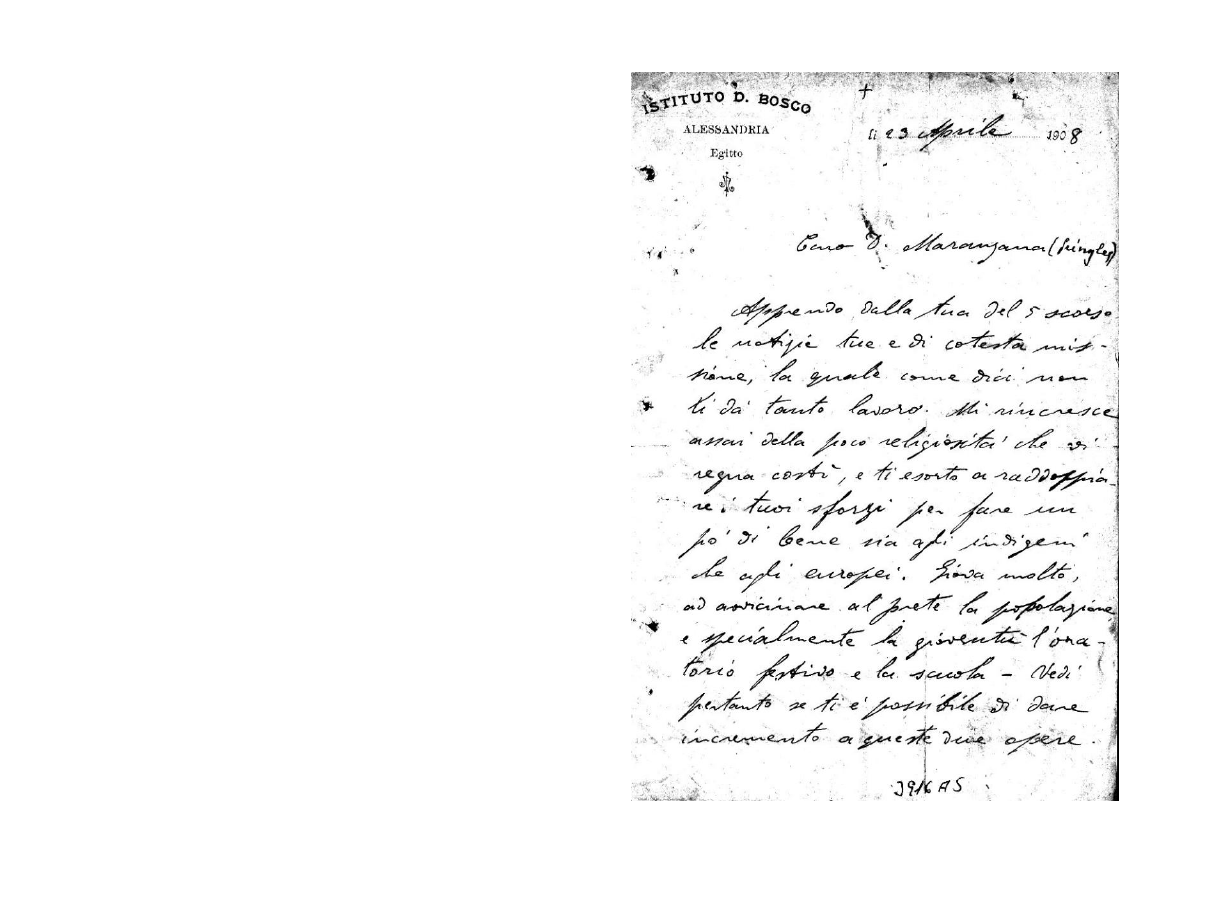 ISTITUTO D. BOSCO
ALESSANDRIA
Egitto
+
li 23 Aprile 1908
Caro D. Maranzana
Apprendo dalla tua del 5 scorso
le notizie tue e di cotesta mis-
sione, la quale come dici non
ti dá tanto lavoro. Mi rincresce
assai della poco religiositá che vi
regna costì, e ti esorto a raddoppia-
re i tuoi sforzi per fare un
pó di bene sia agli indigeni
che agli europei. Giova molto,
ad avvicinare al prete la popolazione
e specialmente la gioventù l'ora-
torio festivo e la scuola - Vedi
pertanto se ti é possibile di dare
incremento a queste due opere.
3916 A5